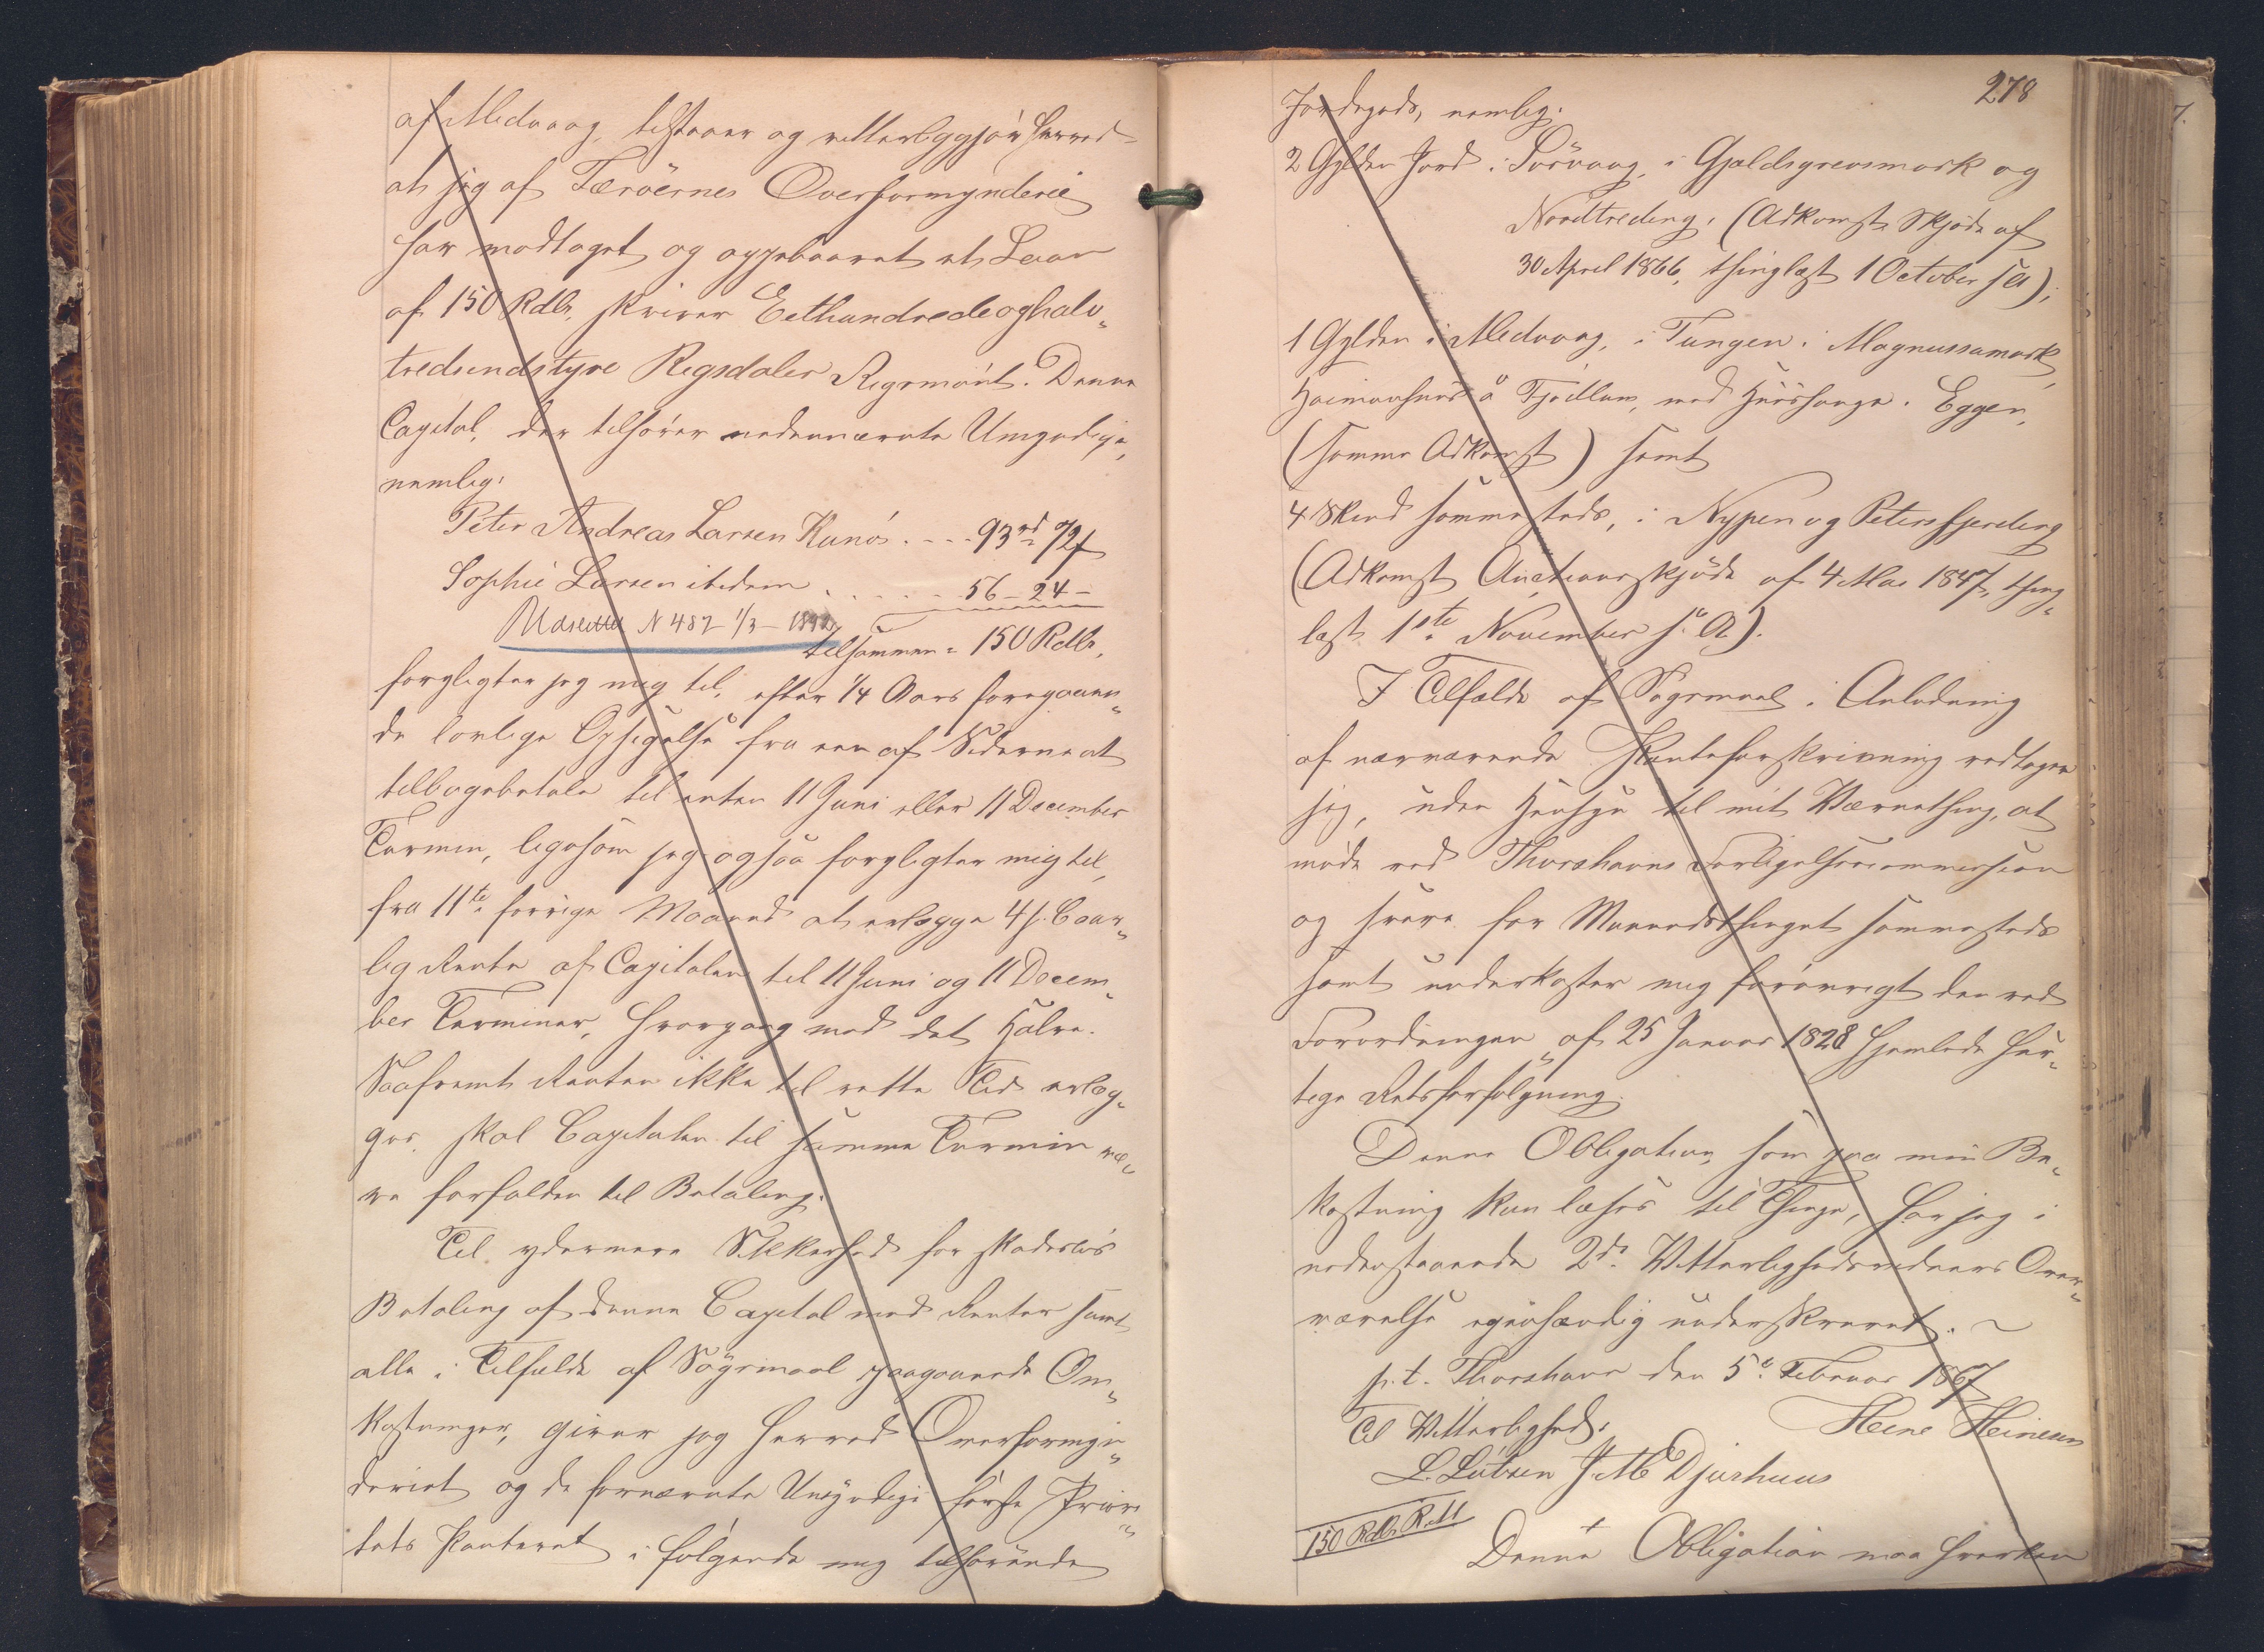 af Midvaag, tilstaaer og vitterliggjør herved
at jeg af Færöernes Overformynderie
har modtaget og oppebaaret et Laan
af 150 Rdlr, skriver Eethundredeoghalv„
tredsindstyve Rigsdaler Rigsmönt. Denne
Capital, der tilhører nedennævnte Umyndige,
nemlig:
Peter Andreas Larsen Kunö .... 93 rd 72 ß
Sophie Larsen ibidem ...... 56 - 24 -
N 487 1/3 - 1892
tilsammen = 150 Rdlr,
forpligter jeg mig til, efter 1/4 Aars foregaaen„
de lovlige Opsigelse fra een af Siderne at
tilbagebetale til enten 11 Juni eller 11 December
Termin, ligesom jeg ogsaa forpligter mig til,
fra 11te forrige Maaned at erlægge 4 p. C. aar„
lig Rente af Capitalen til 11 Juni og 11 Decem„
ber Terminer, hvergang med det Halve.
Saafremt Renten ikke til rette Tid erlæg„
ges, skal Capitalen til samme Termin væ„
re forfalden til Betaling.
Til ydermere Sikkerhed for skadeslös
Betaling af denne Capital med Renter samt
alle i Tilfælde af Sögsmaal paagaaende Om„
kostninger, giver jeg herved Overformyn„
deriet og de fornævnte Umyndige förste Priori„
tets Panteret i fölgende mig tilhörende
278
Jordegods, nemlig:
2 Gylden Jord i Sörvaag, i Gjaldsgrevsmark og
Nordtreding, (Adkomst Skjöde af
30 April 1866, thinglæst 1 October s A);
1 Gylden i Midvaag, i Tungen i Magnussamark,
å med Huushauge. Eggen,
(samme Adkomst) samt
4 Skind sammesteds, i Nypen og Petersfjerding
(Adkomst Auctionsskjöde af 4 Mai 1847, thing„
læst 1ste November s. A.).
I Tilfælde af Sögsmaal i Anledning
af nærværende Panteforskrivning vedtager
jeg, uden Hensyn til mit Værnething, at
möde ved Thorshavns Forligelsescommission
og svare for Maanedsthinget sammesteds
samt underkaster mig forövrigt den ved
Forordningen af 25 Januar 1828 hjemlede hur„
tige Retsforfölgning.
Denne Obligation, som paa min Be„
kostning kan læses til Thinge, har jeg i
nedenstaaende 2de Vitterlighedsvidners Over„
værelse egenhændig underskrevet. ~
p. t. Thorshavn den 5te Februar 1867
Til Vitterlighed: Heine Heinesen
L. Lützen J. M. Djurhuus
150 Rdlr. R. M
Denne Obligation maa hverken